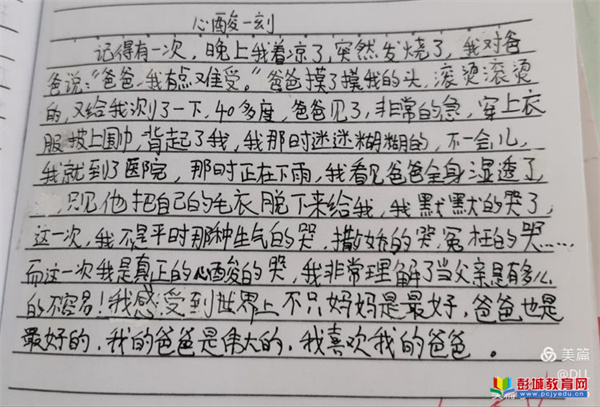 心酸一刻
记得有一次，晚上我着凉了，突然发烧了，我对爸
爸说：“爸爸，我有点难受。”爸爸摸了摸我的头，滚烫滚烫
的，又给我测了一下，40多度，爸爸见了，非常的急，穿上衣
服披上围巾，背起了我，我那时迷迷糊糊的，不一会儿，
我就到了医院，那时正在下雨，我看见爸爸全身湿透了
，只见他把自己的毛衣脱下来给我，我默默的哭了，
这一次，我不是平时那种生气的哭，撒娇的哭，冤枉的哭……
而这一次我是真正的心酸的哭，我非常理解了当父亲是有多么
的不容易！我感受到世界上不只妈妈是最好，爸爸也是
最好的，我的爸爸是伟大的，我喜欢我的爸爸。
美篇
@DLL
彭城教育网
www.pcjyedu.cn